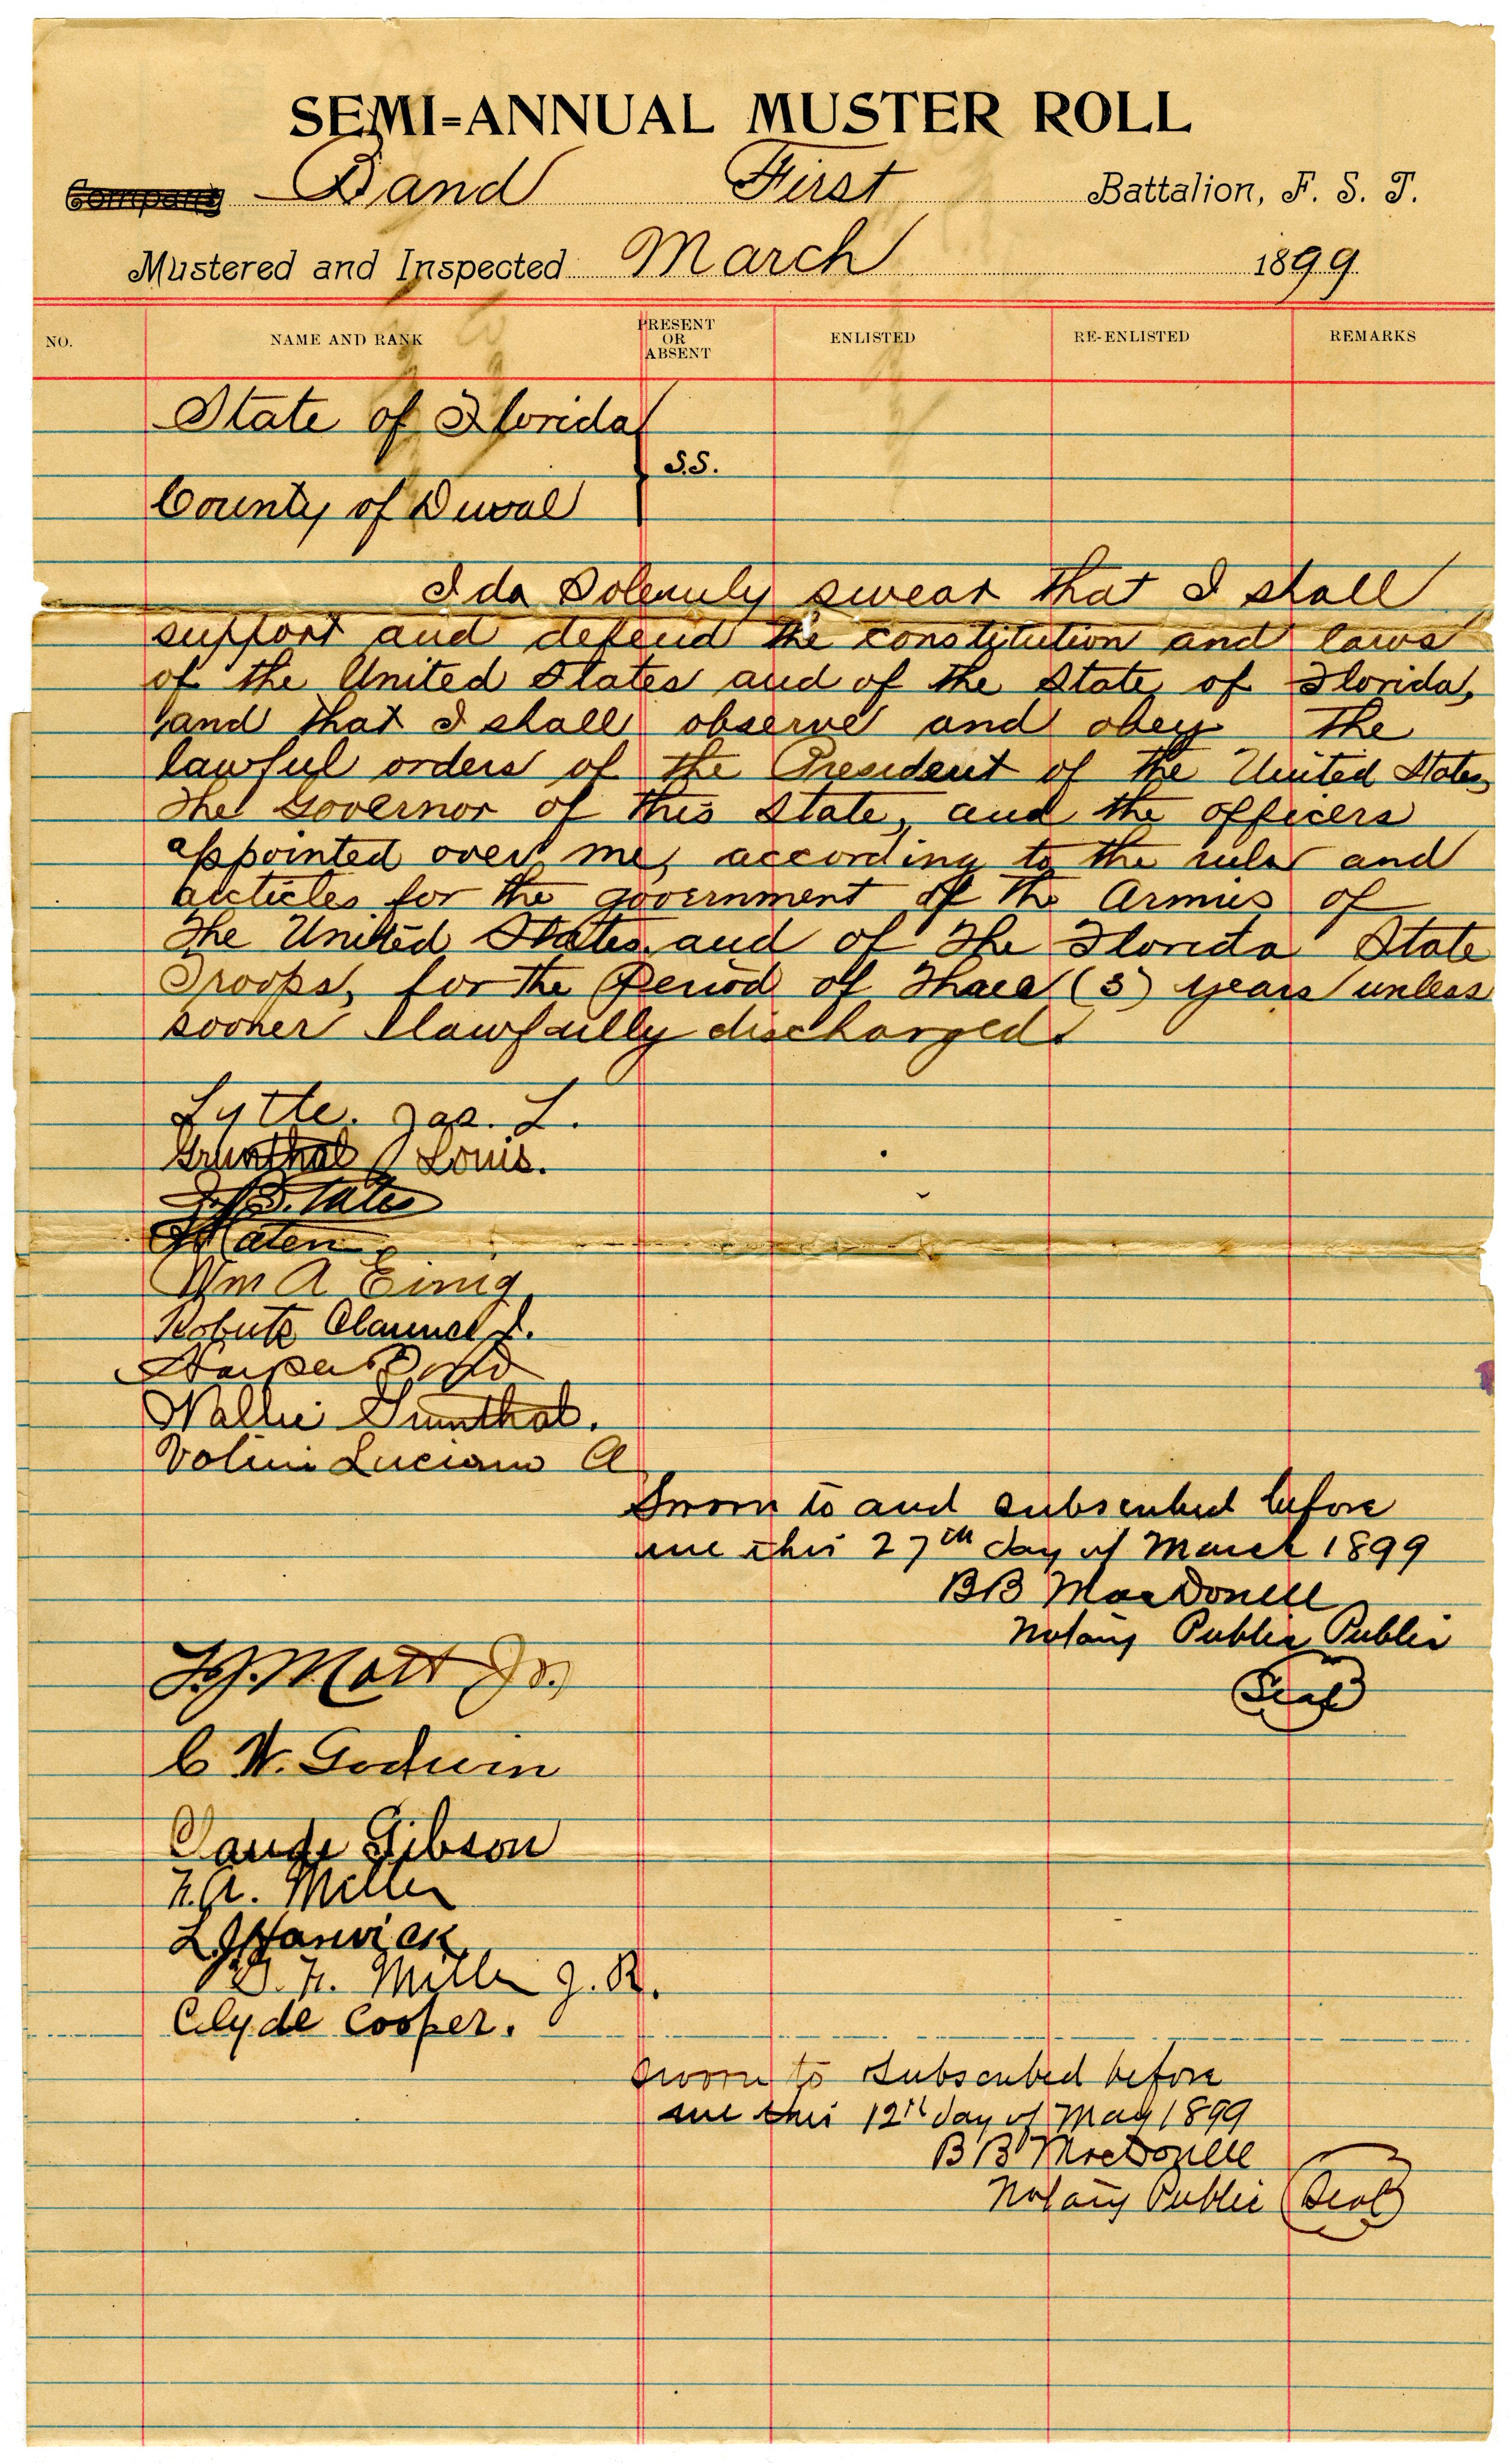 SEMI-ANNUAL MUSTER ROLL
Company Band First Battalion, F. S. T.
Mustered and Inspected March 1899
NO. NAME AND RANK PRESENT OR ABSENT ENLISTED RE-ENLISTED REMARKS
State of Florida
S.S.
County of Duval
I do Solemnly swear that I shall
support and defend the constitution and laws
of the United States and of the State of Florida,
and that I shall observe and obey the
lawful orders of the President of the United States,
the Governor of this State, and the officers
appointed over me, according to the rules and
articles for the government of the Armies of
the United States and of the Florida State
Troops, for the Period of Three (3) years unless
sooner lawfully discharged.
Lytle. Jas. L.
Grunthal Louis.
Wm A Einig
Roberts Clarence
Harper
Wallie Grunthal.
Luciano A
Sworn to and subscribed before
me this 27th day of March 1899
BB MacDonell
Notary Public Public
Seal
Mott Jr.
C W. Godwin
Claude Gibson
A. Miller
Harwick
Miller J. R.
Clyde Cooper.
Sworn to Subscribed before
me this 12th day of May 1899
B B MacDonell
Notary Public Seal